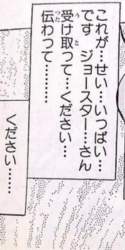 これが…せい…いっぱい…
です ジョースター…さん
受け取って…ください…
伝わって………
ください……